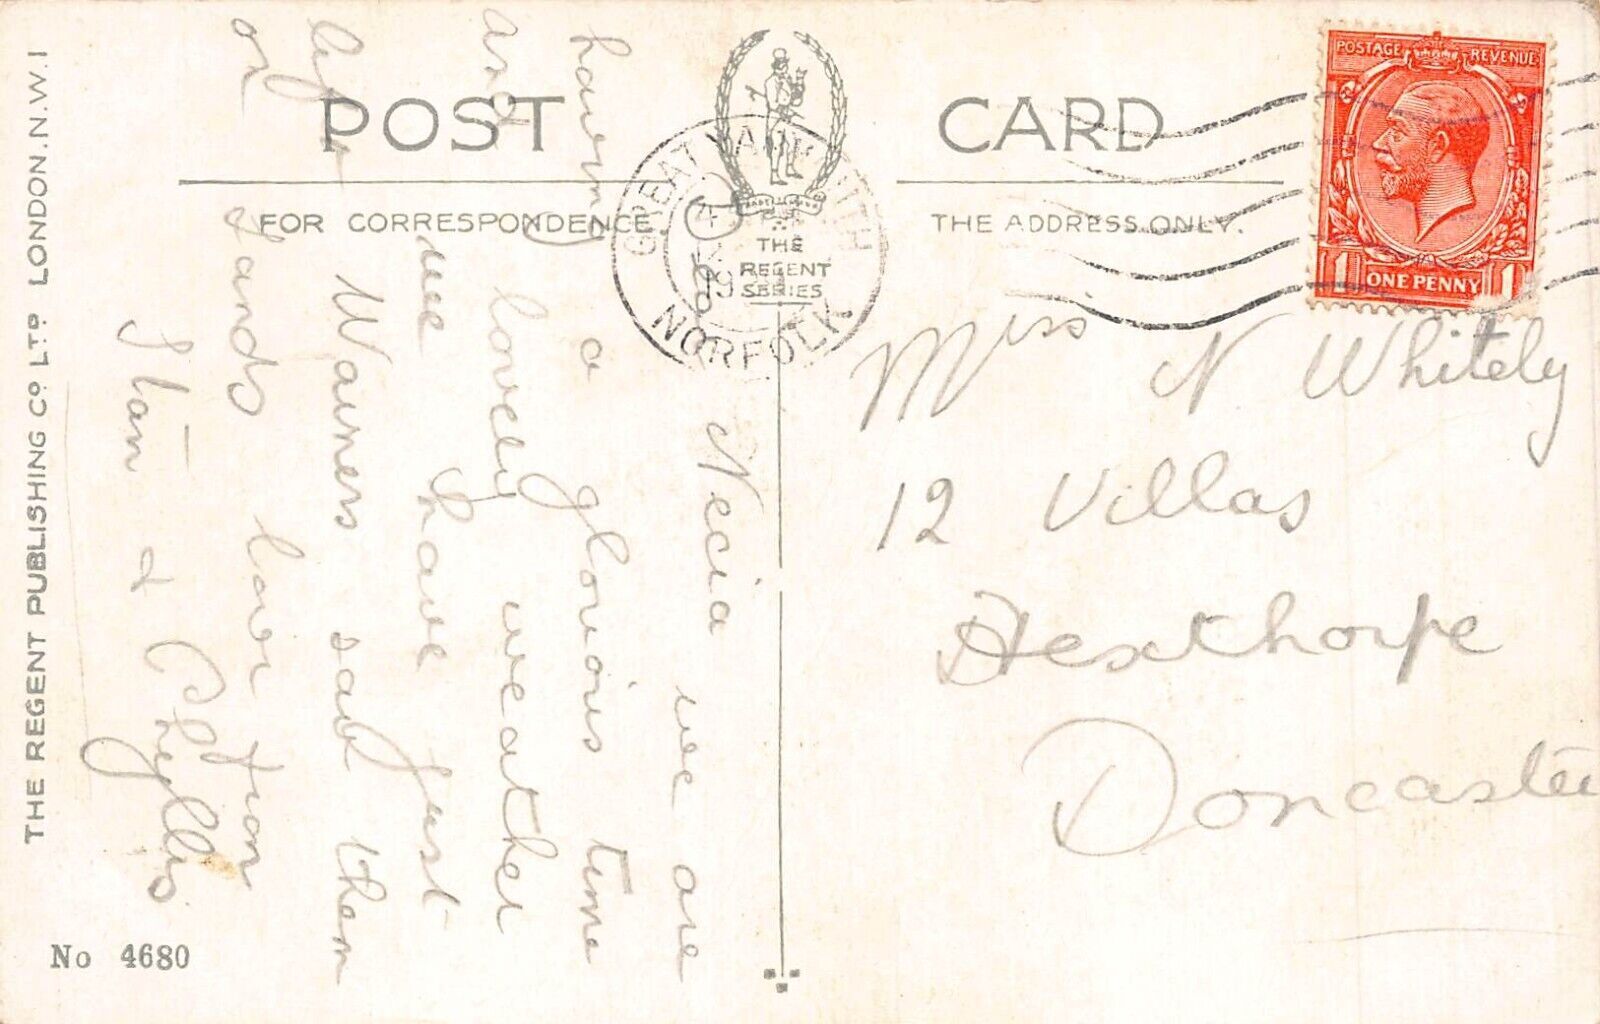 POST CARD
FOR CORRESPONDENCE.
THE ADDRESS ONLY.
THE
REGENT
SERIES
GREAT YARMOUTH
NORFOLK
POSTAGE REVENUE
1 ONE PENNY 1
THE REGENT PUBLISHING Co LTD LONDON. N.W.1
No 4680
Necia we are
having a glorious time
and lovely weather
we have just
Warners sad them
on sands love from
Stan & Phyllis
Miss N Whitely
12 Villas
Hexthorpe
Doncaster